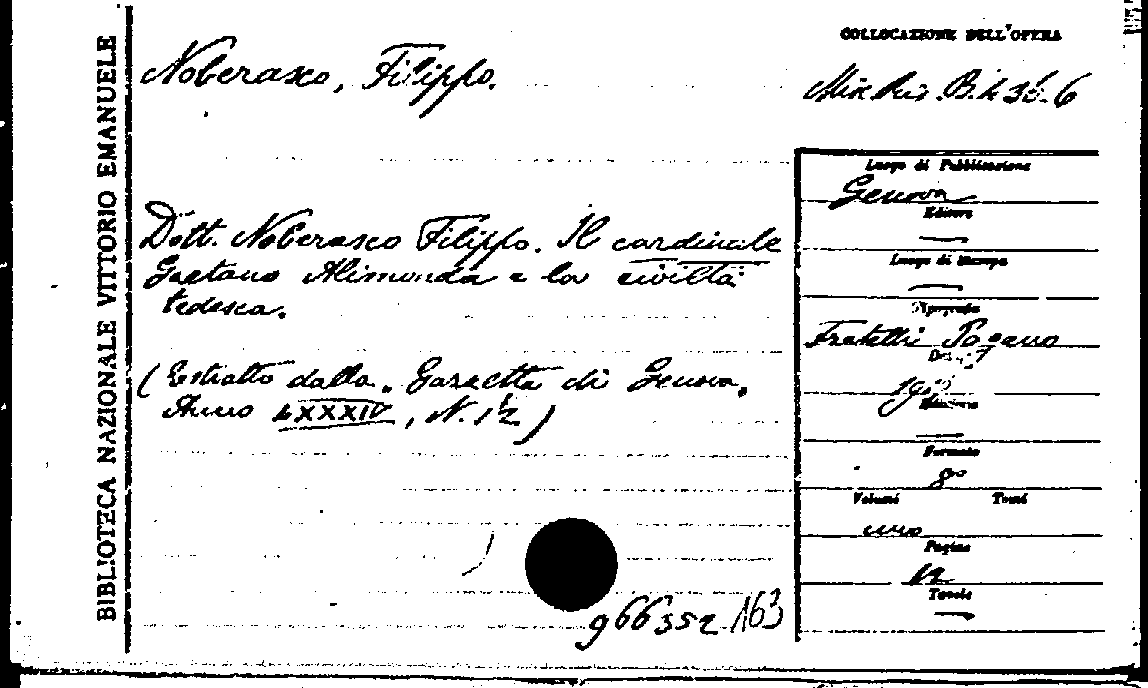 BIBLIOTECA NAZIONALE VITTORIO EMANUELE
Noberasco, Filippo.
COLLOCAZIONE DELL'OPERA
B. 6
Dott. Noberasco Filippo. Il cardinale
Gaetano Alimonda e la civiltà
tedesca.
(Estratto dalla "Gazzetta di Genova,
Anno LXXXIV, N. 12)
Luogo di Pubblicazione
Genova
Editore
—
Luogo di Stampa
—
Tipografia
Fratelli Pagano
Edizione
—
Formato
8°
Volumi Tomi
uno
Pagine
12
Tavole
—
966352 163